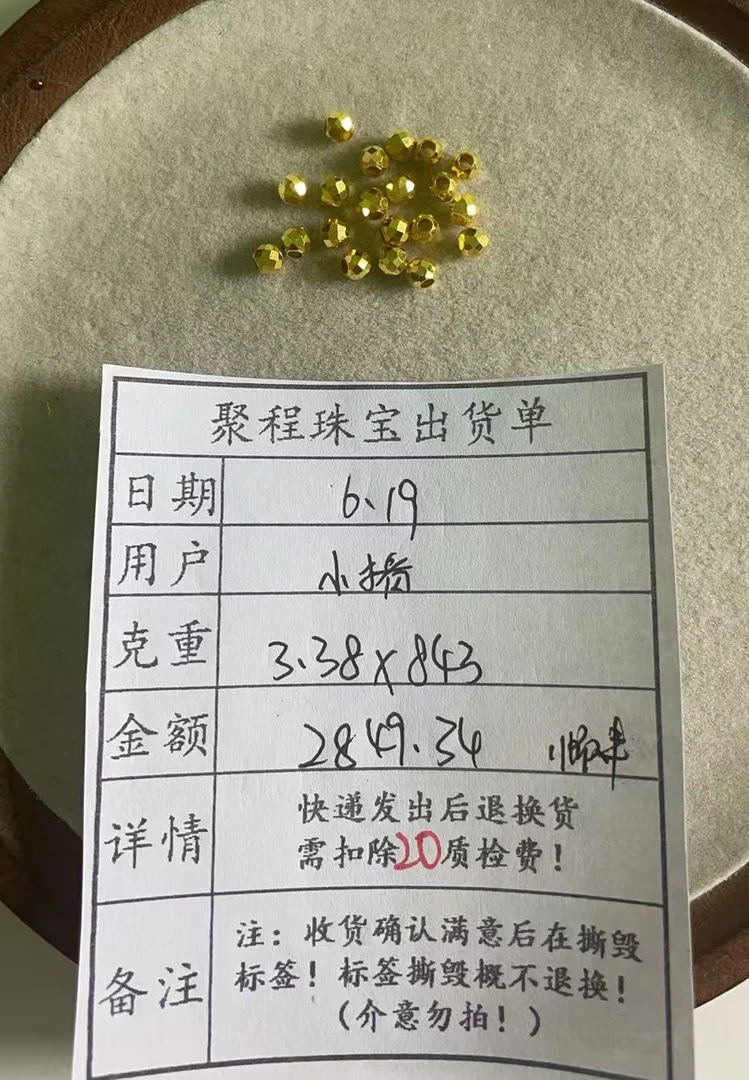 聚程珠宝出货单
日期 6.19
用户 小扬
克重 3.38×843
金额 2849.34 顺丰
详情 快递发出后退换货
需扣除20质检费！
备注 注：收货确认满意后在撕毁
标签！标签撕毁概不退换！
（介意勿拍！）